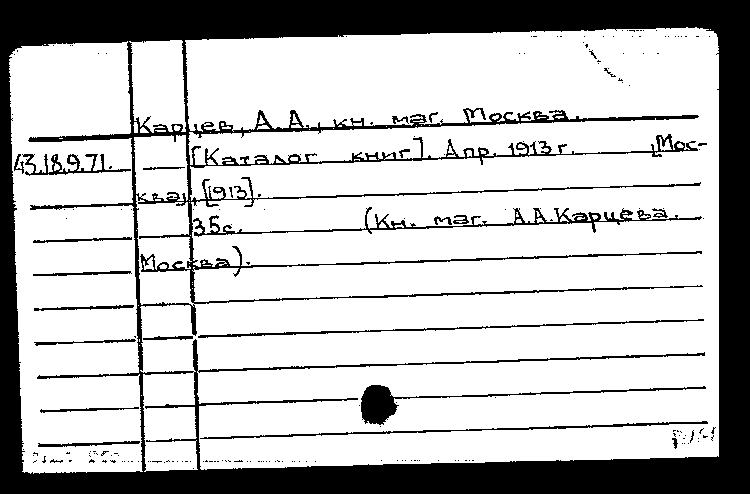 Карцев, А. А., кн. маг. Москва.
43.18.9.71. [Каталог книг]. Апр. 1913 г. [Мос-
ква], [1913].
35с. (Кн. маг. А.А.Карцева.
Москва).